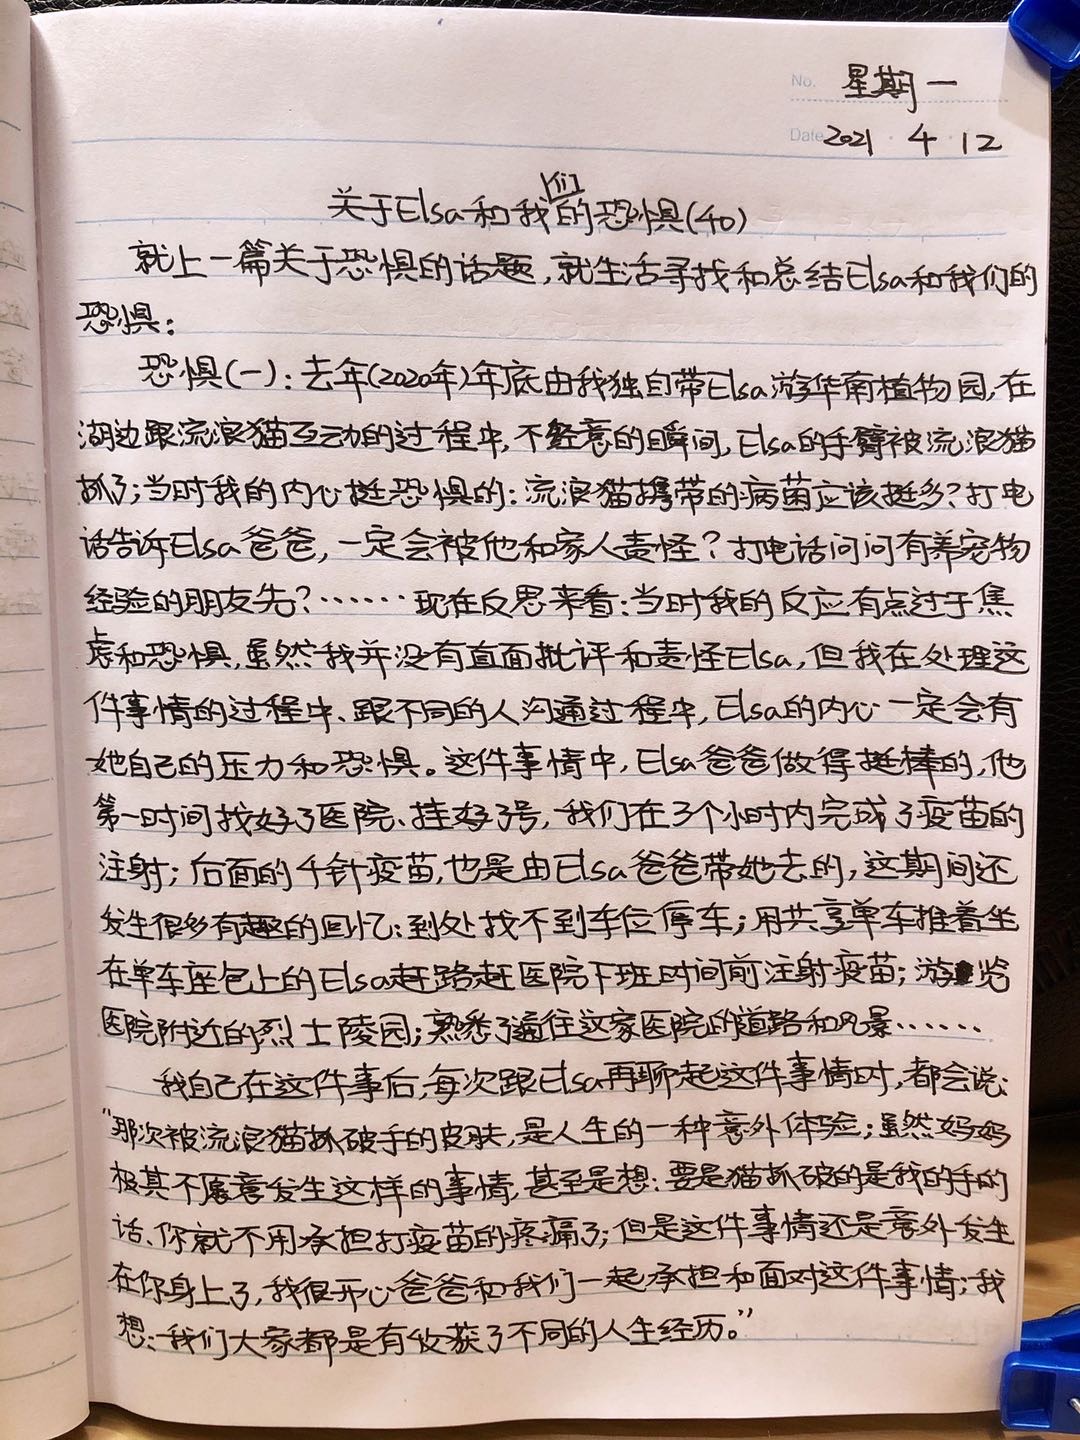 No. 星期一
Date 2021 · 4 · 12
关于Elsa和我们的恐惧(40)
就上一篇关于恐惧的话题,就生活寻找和总结Elsa和我们的
恐惧:
恐惧(一):去年(2020年)年底由我独自带Elsa游华南植物园,在
湖边跟流浪猫互动的过程中,不经意的瞬间,Elsa的手臂被流浪猫
抓了;当时我的内心挺恐惧的:流浪猫携带的病菌应该挺多?打电
话告诉Elsa爸爸,一定会被他和家人责怪?打电话问问有养宠物
经验的朋友先?……现在反思来看:当时我的反应有点过于焦
虑和恐惧,虽然我并没有直面批评和责怪Elsa,但我在处理这
件事情的过程中、跟不同的人沟通过程中,Elsa的内心一定会有
她自己的压力和恐惧。这件事情中,Elsa爸爸做得挺棒的,他
第一时间找好了医院、挂好了号,我们在3个小时内完成了疫苗的
注射;后面的4针疫苗,也是由Elsa爸爸带她去的,这期间还
发生很多有趣的回忆:到处找不到车位停车;用共享单车推着坐
在单车座包上的Elsa赶路赶医院下班时间前注射疫苗;游览
医院附近的烈士陵园;熟悉了通往这家医院的道路和风景……
我自己在这件事后,每次跟Elsa再聊起这件事情时,都会说:
“那次被流浪猫抓破手的皮肤,是人生的一种意外体验;虽然妈妈
极其不愿意发生这样的事情,甚至是想:要是猫抓破的是我的手的
话、你就不用承担打疫苗的疼痛了;但是这件事情还是意外发生
在你身上了,我很开心爸爸和我们一起承担和面对这件事情;我
想:我们大家都是有收获了不同的人生经历。”